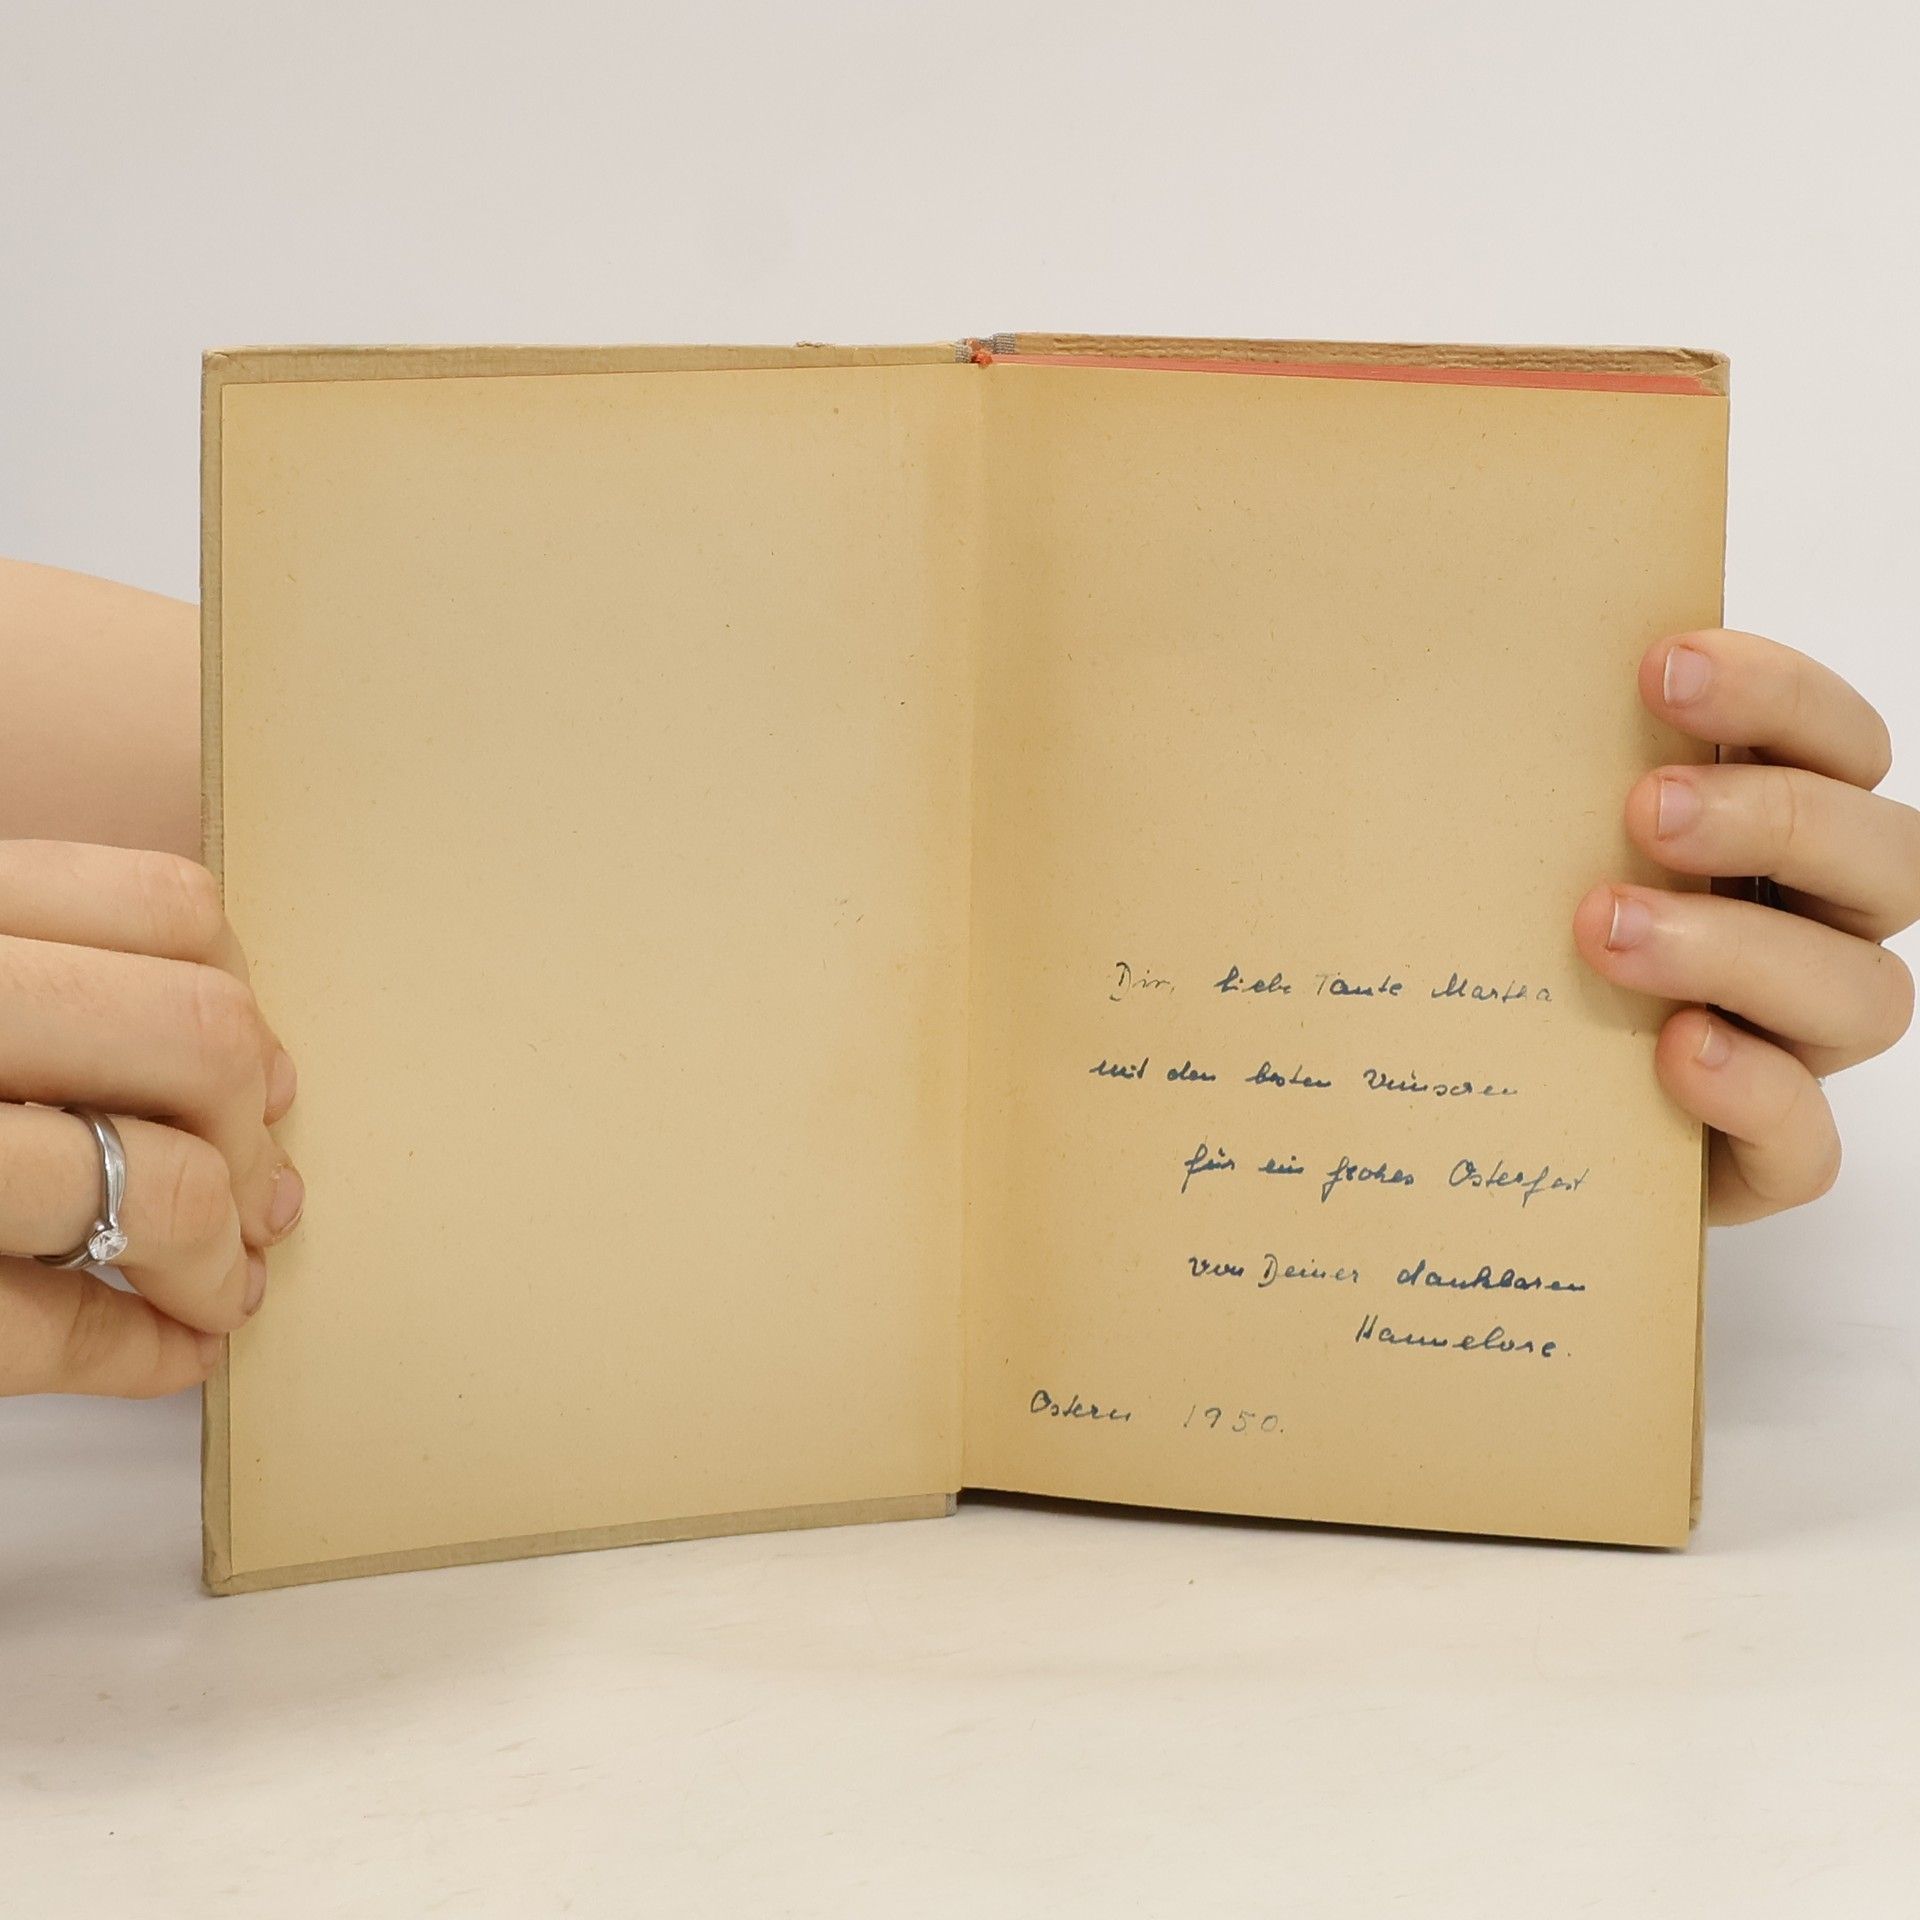 Dir, liebe Tante Martha
mit den besten Wünschen
für ein frohes Osterfest
von Deiner dankbaren
Hannelore.
Ostern 1950.